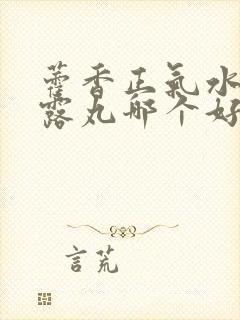 藿香正氣水
露丸哪个好
言荒